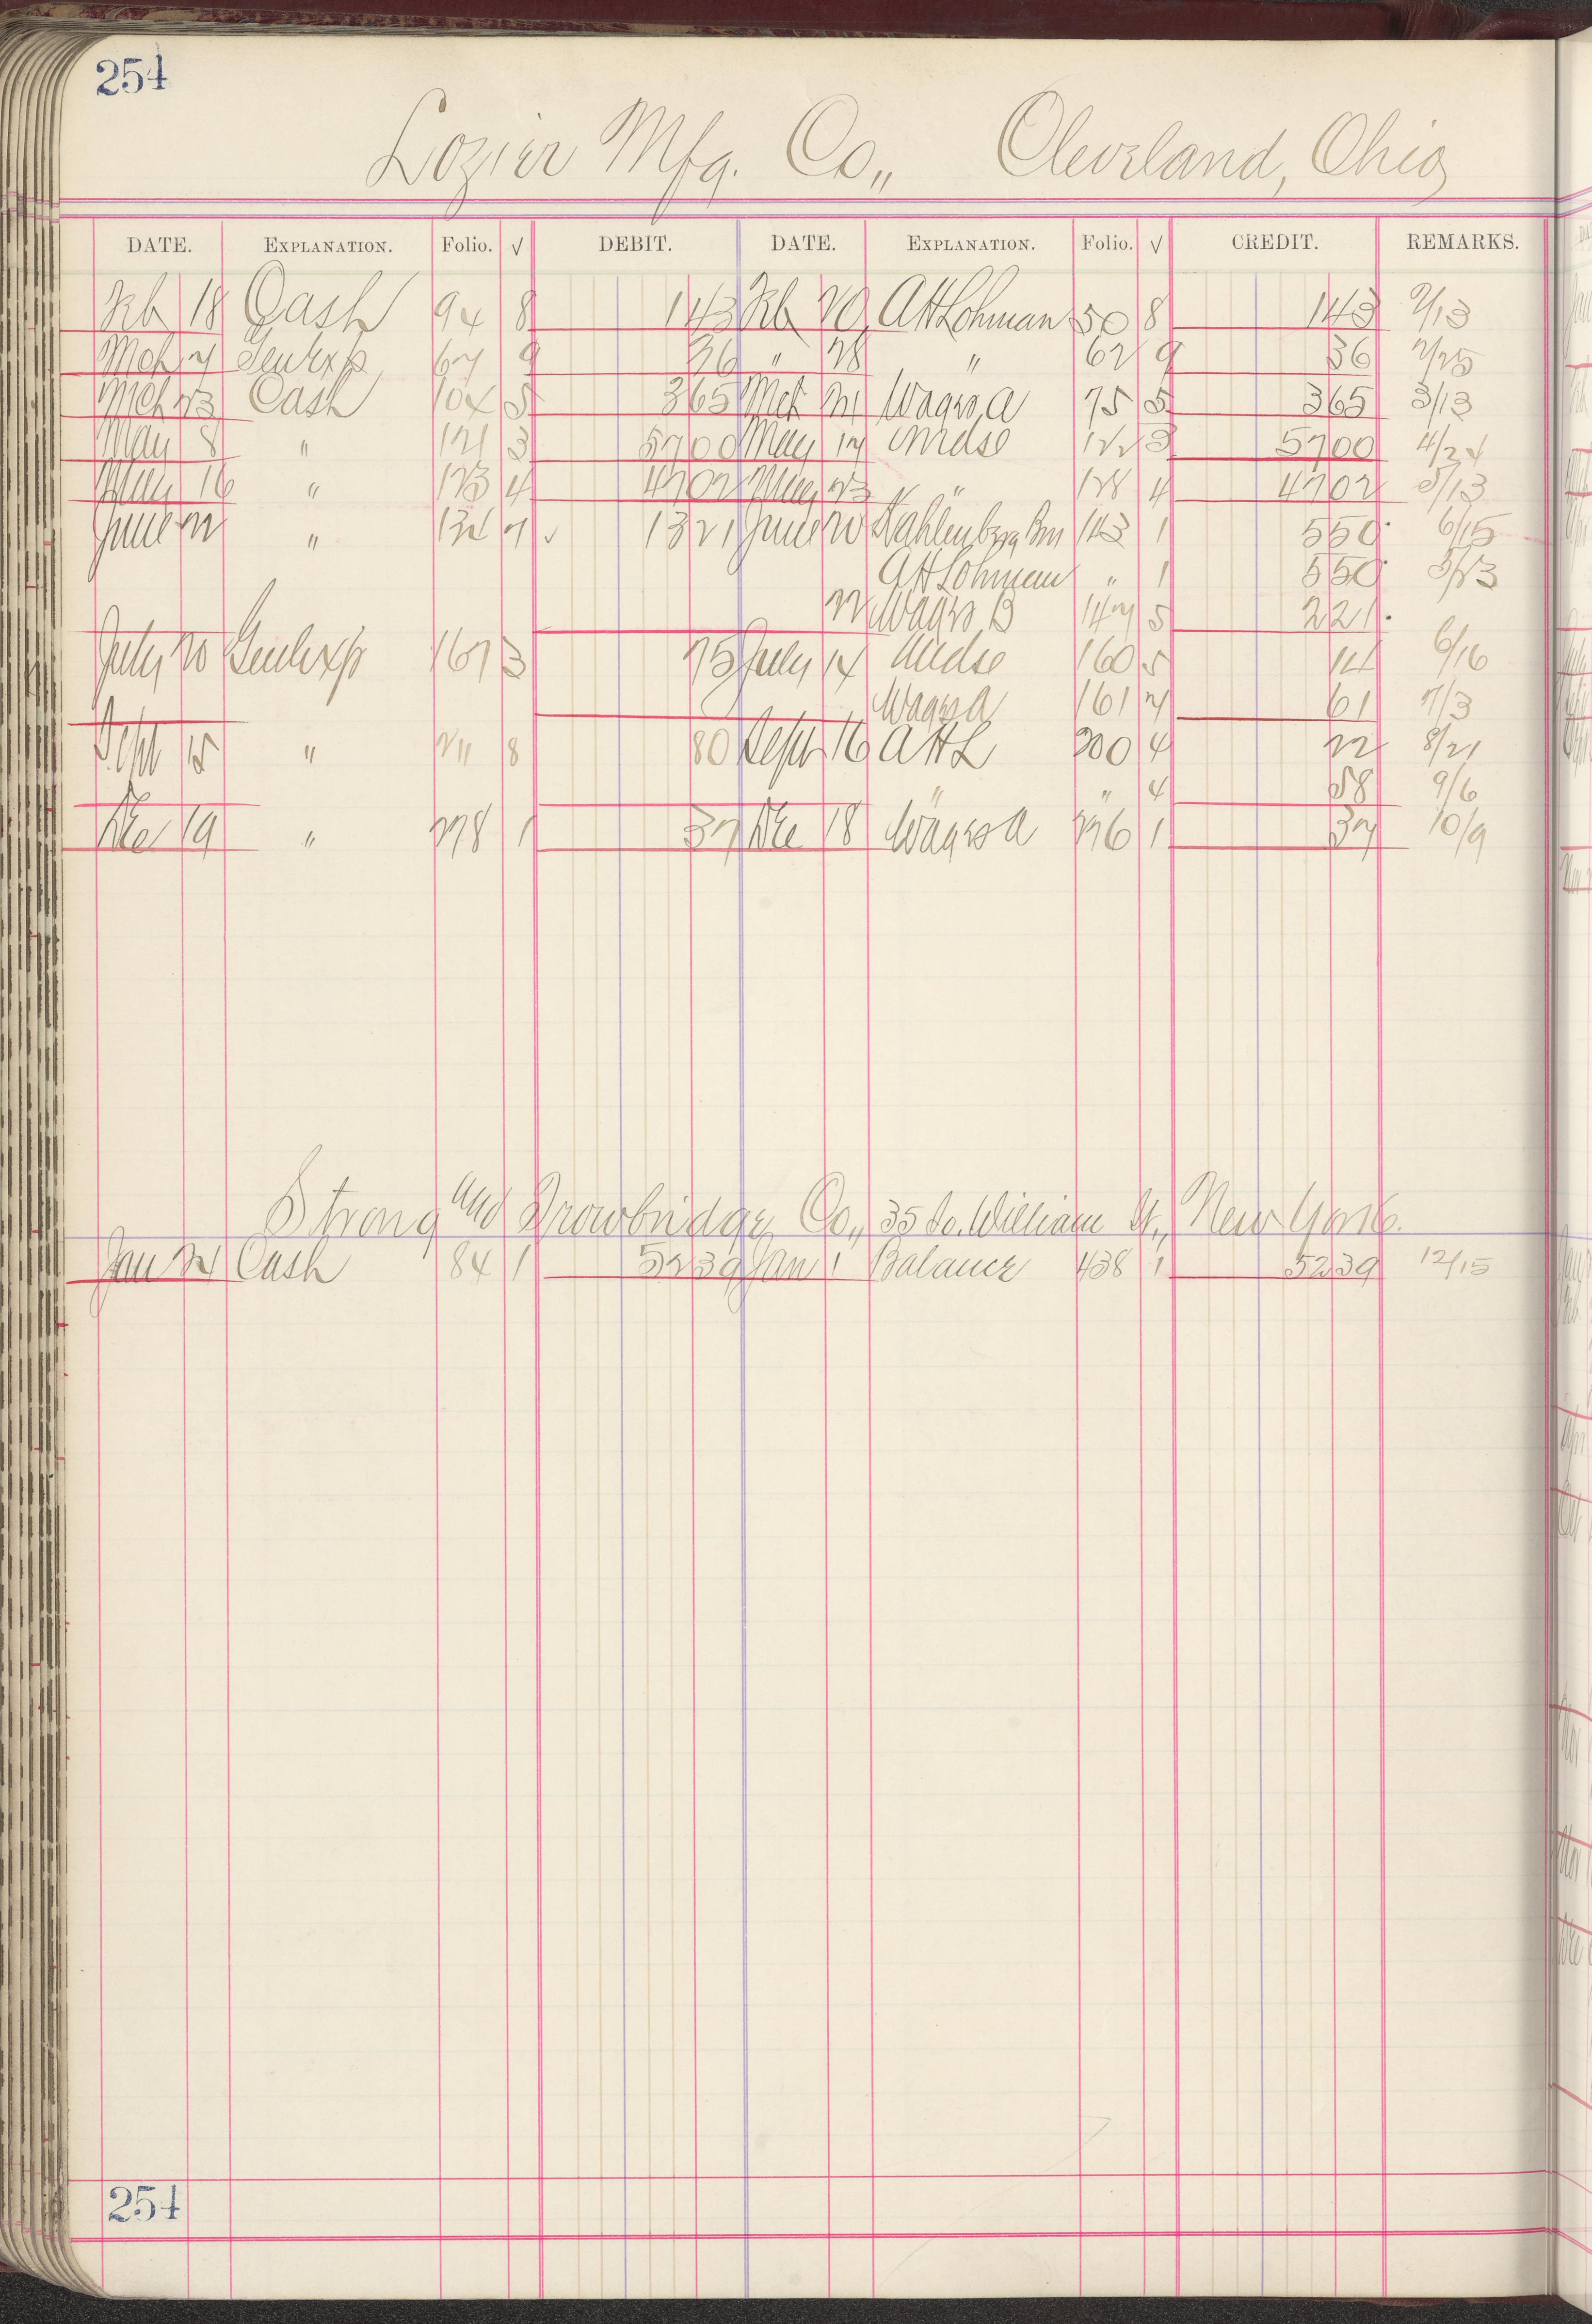 254
Lozier Mfg. Co., Cleveland, Ohio
DATE. EXPLANATION. Folio. √ DEBIT. DATE. EXPLANATION. Folio. √ CREDIT. REMARKS.
Feb 18 Cash 94 8 143 Feb 20 A H Lohman 50 8 143 2/13
Mch 7 Genl exp 67 9 36 " 28 " 62 9 36 2/25
Mch 23 Cash 104 5 365 Mch 21 Wagw a 75 5 365 3/13
May 8 " 121 3 5700 May 17 Mdse 122 3 5700 4/24
May 16 " 123 4 4702 May 23 " 128 4 4702 5/13
June 22 " 132 7 √ 1321 June 20 Kahlenberg Bros 143 1 550 6/15
A H Lohman " 1 550 5/23
22 Wagw B 147 5 221
July 20 Genl exp 167 3 75 July 14 Mdse 160 5 14 6/16
Wagw a 161 7 61 7/3
Sept 15 " 211 8 80 Sept 16 A H L 200 4 22 8/21
" " 4 58 9/6
Dec 19 " 278 1 37 Dec 18 Wagw a 276 1 37 10/9
Strong and Trowbridge Co., 35 So. William St., New York.
Jan 21 Cash 84 1 5239 Jan 1 Balance 438 1 5239 12/15
254